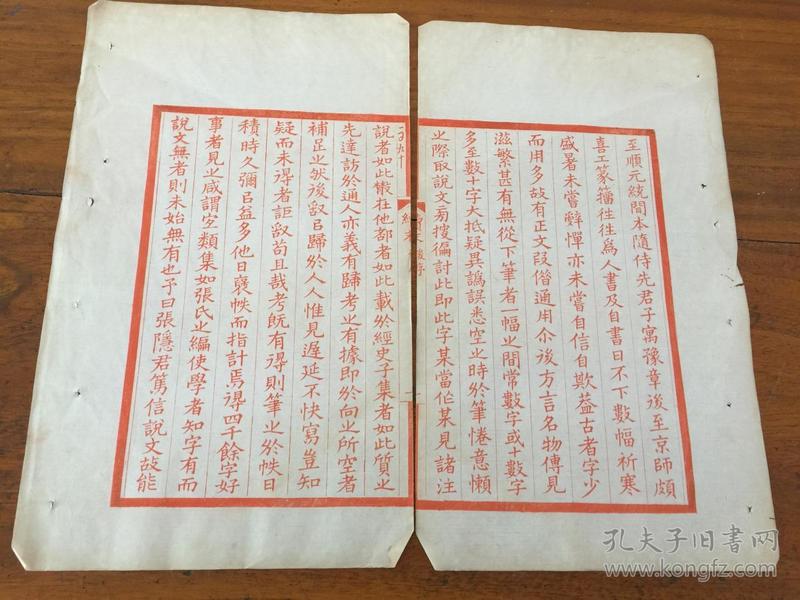 至順元統間本隨侍先君子寓豫章後至京師頗
喜工篆籒往往為人書及自書日不下數幅祈寒
盛暑未嘗辭憚亦未嘗自信自欺葢古者字少
而用多故有正文叚借通用尒後方言名物傳見
滋繁甚有無從下筆者一幅㞢間常數字或十數字
多至數十字大抵疑異譌誤悉空㞢時於筆惓意懶
㞢際取說文㫄搜徧討此即此字某當作某見諸注
說者如此檄在他部者如此載於經史子集者如此質㞢
先達訪於通人亦義有歸考㞢有據即於向㞢所空者
補足㞢然後叙㠯歸於人人惟見遲延不快寫豈知
疑而未得者詎叙苟且哉考既有得則筆㞢於帙日
積時久彌㠯益多他日裒帙而指計焉得四千餘字好
事者見㞢咸謂宐類集如張氏㞢編使學者知字有而
說文無者則未始無有也予曰張隱君篤信說文故能
孔夫子旧书网
www.kongfz.com